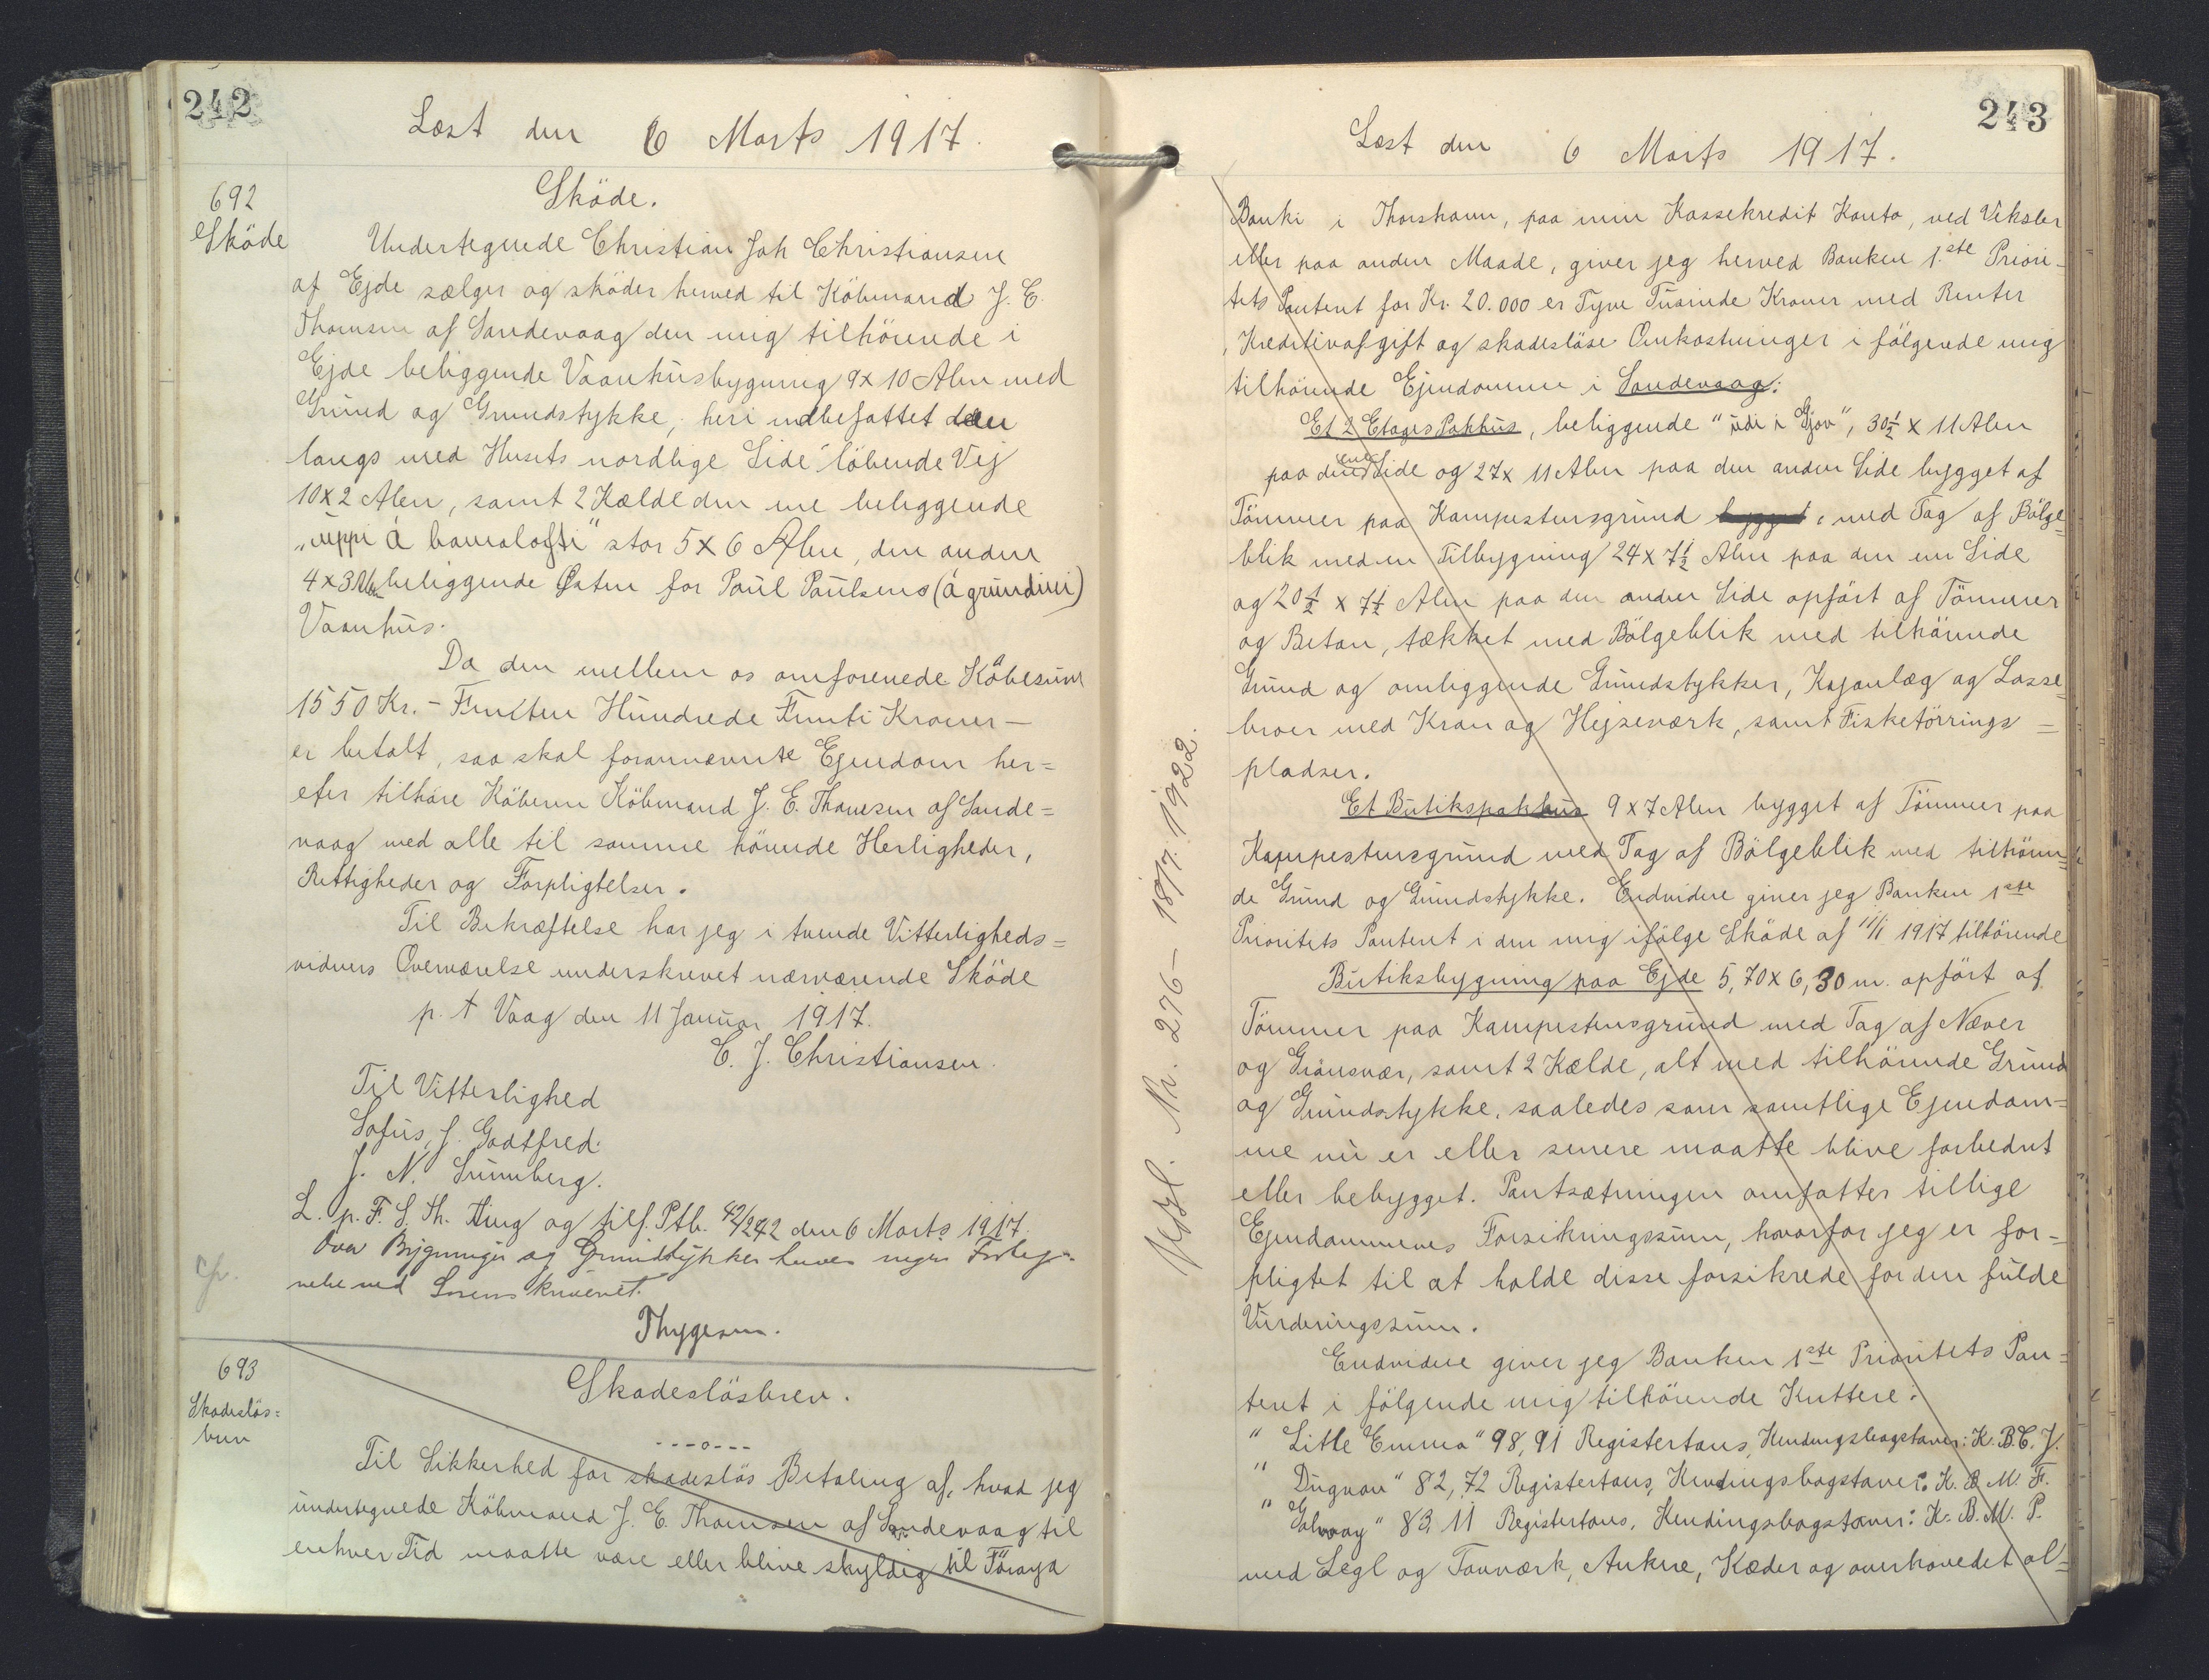 242
Læst den 6 Marts 1917.
692
Sköde
Sköde.
Undertegnede Christian Joh Christiansen
af Ejde sælger og sköder herved til Köbmand J. E.
Thomsen af Sandevaag den mig tilhörende i
Ejde beliggende Vaanhusbygning 9x10 Alen med
Grund og Grundstykke, heri indbefattet den
langs med Husets nordlige Side löbende Vej
10x2 Alen, samt 2 Kælde den ene beliggende
"uppi á" stor 5x6 Alen, den anden
4x3 Alen beliggende Østen for Poul Poulsens (á grundini)
Vaanhus.
Da den mellem os omforenede Köbesum
1550 Kr. - Femten Hundrede Femti Kroner -
er betalt, saa skal forannævnte Ejendom her=
efter tilhöre Köberen Köbmand J. E. Thomsen af Sande=
vaag med alle til samme hörende Herligheder,
Rettigheder og Forpligtelser.
Til Bekræftelse har jeg i tvende Vitterligheds=
vidners Overværelse underskrevet nærværende Sköde
p. t Vaag den 11 Januar 1917.
C. J. Christiansen.
Til Vitterlighed
Sofus J. Godtfred.
J. N. Sumberg.
L. p. F. S. Th. Ting og tilf. Ptb. 42/242 den 6 Marts 1917.
Over Bygninger og Grundstykker haves ingen Forteg=
nelse ved Sorenskriveriet.
Thygesen.
693
Skadeslös=
brev
Skadeslösbrev.
---o---
Til Sikkerhed for skadeslös Betaling af, hvad jeg
undertegnede Köbmand J. E. Thomsen af Sandevaag til
enhver Tid maatte være eller blive skyldig til Föroya
243
Læst den 6 Marts 1917.
Banki i Thorshavn, paa min Kassekredit Konto, ved Veksler
eller paa anden Maade, giver jeg herved Banken 1.ste Priori=
tets Panteret for Kr. 20.000 er Tyve Tusinde Kroner med Renter
, Kreditivafgift og skadeslöse Omkostninger i fölgende mig
tilhörende Ejendomme i Sandevaag:
Et 2 Etages Pakhus, beliggende "úti i Gjov", 30½ x 11 Alen
paa den ene Side og 27x11 Alen paa den anden Side bygget af
Tömmer paa Kampestensgrund bygget, med Tag af Bölge=
blik med en Tilbygning 24x7½ Alen paa den ene Side
og 20½ x 7½ Alen paa den anden Side opfört af Tömmer
og Beton, tækket med Bölgeblik med tilhörende
Grund og omliggende Grundstykker, Kajanlæg og Losse=
broer med Kran og Hejseværk, samt Fisketörrings=
pladser.
Et Butikspakhus 9x7 Alen bygget af Tömmer paa
Kampestensgrund med Tag af Bölgeblik med tilhören=
de Grund og Grundstykke. Endvidere giver jeg Banken 1ste
Prioritets Panteret i den mig ifölge Sköde af 11/1 1917 tilhörende
Butiksbygning paa Ejde 5,70x6,30 m. opfört af
Tömmer paa Kampestensgrund med Tag af Næver
og Grönsvær, samt 2 Kælde, alt med tilhörende Grund
og Grundstykke, saaledes som samtlige Ejendom=
me nu er eller senere maatte blive forbedret
eller bebygget. Pantsætningen omfatter tillige
Ejendommenes Forsikringssum, hvorfor jeg er for=
pligtet til at holde disse forsikrede for den fulde
Vurderingssum.
Endvidere giver jeg Banken 1ste Prioritets Pan=
teret i fölgende mig tilhörende Kuttere.
" Litle Emma" 98,91 Registertons, Kendingsbogstaver: K. B. C. J.
" Dugvan" 82,72 Registertons, Kendingsbogstaver: K. B. M. F.
" Galway" 83 11 Registertons, Kendingsbogstaver: K. B. M. P.
med Segl og Tovværk, Ankre, Kæder og overhovedet al=
Aflyst. Nr. 276 - 18/7. 1922.